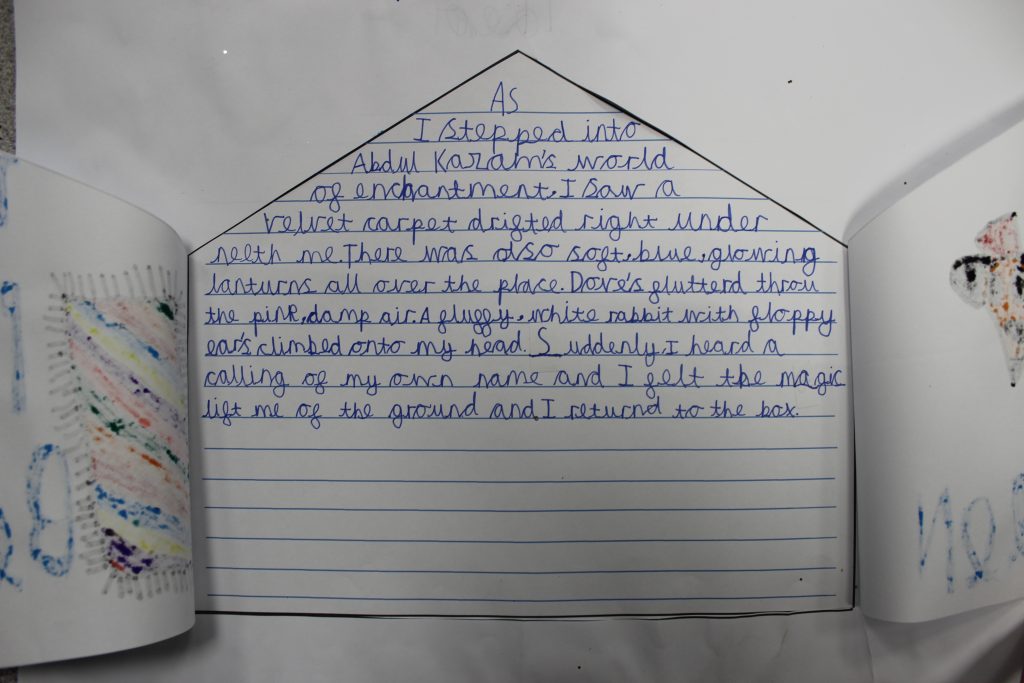 As
I stepped into
Abdul Kazam's world
of enchantment. I saw a
velvet carpet drifted right under
neeth me. There was also soft, blue, glowing
lanturns all over the place. Dove's flutterd throu
the pink, damp air. A fluffy, white rabbit with floppy
ear's climbed onto my head. Suddenly I heard a
calling of my own name and I felt the magic
lift me of the ground and I returnd to the box.